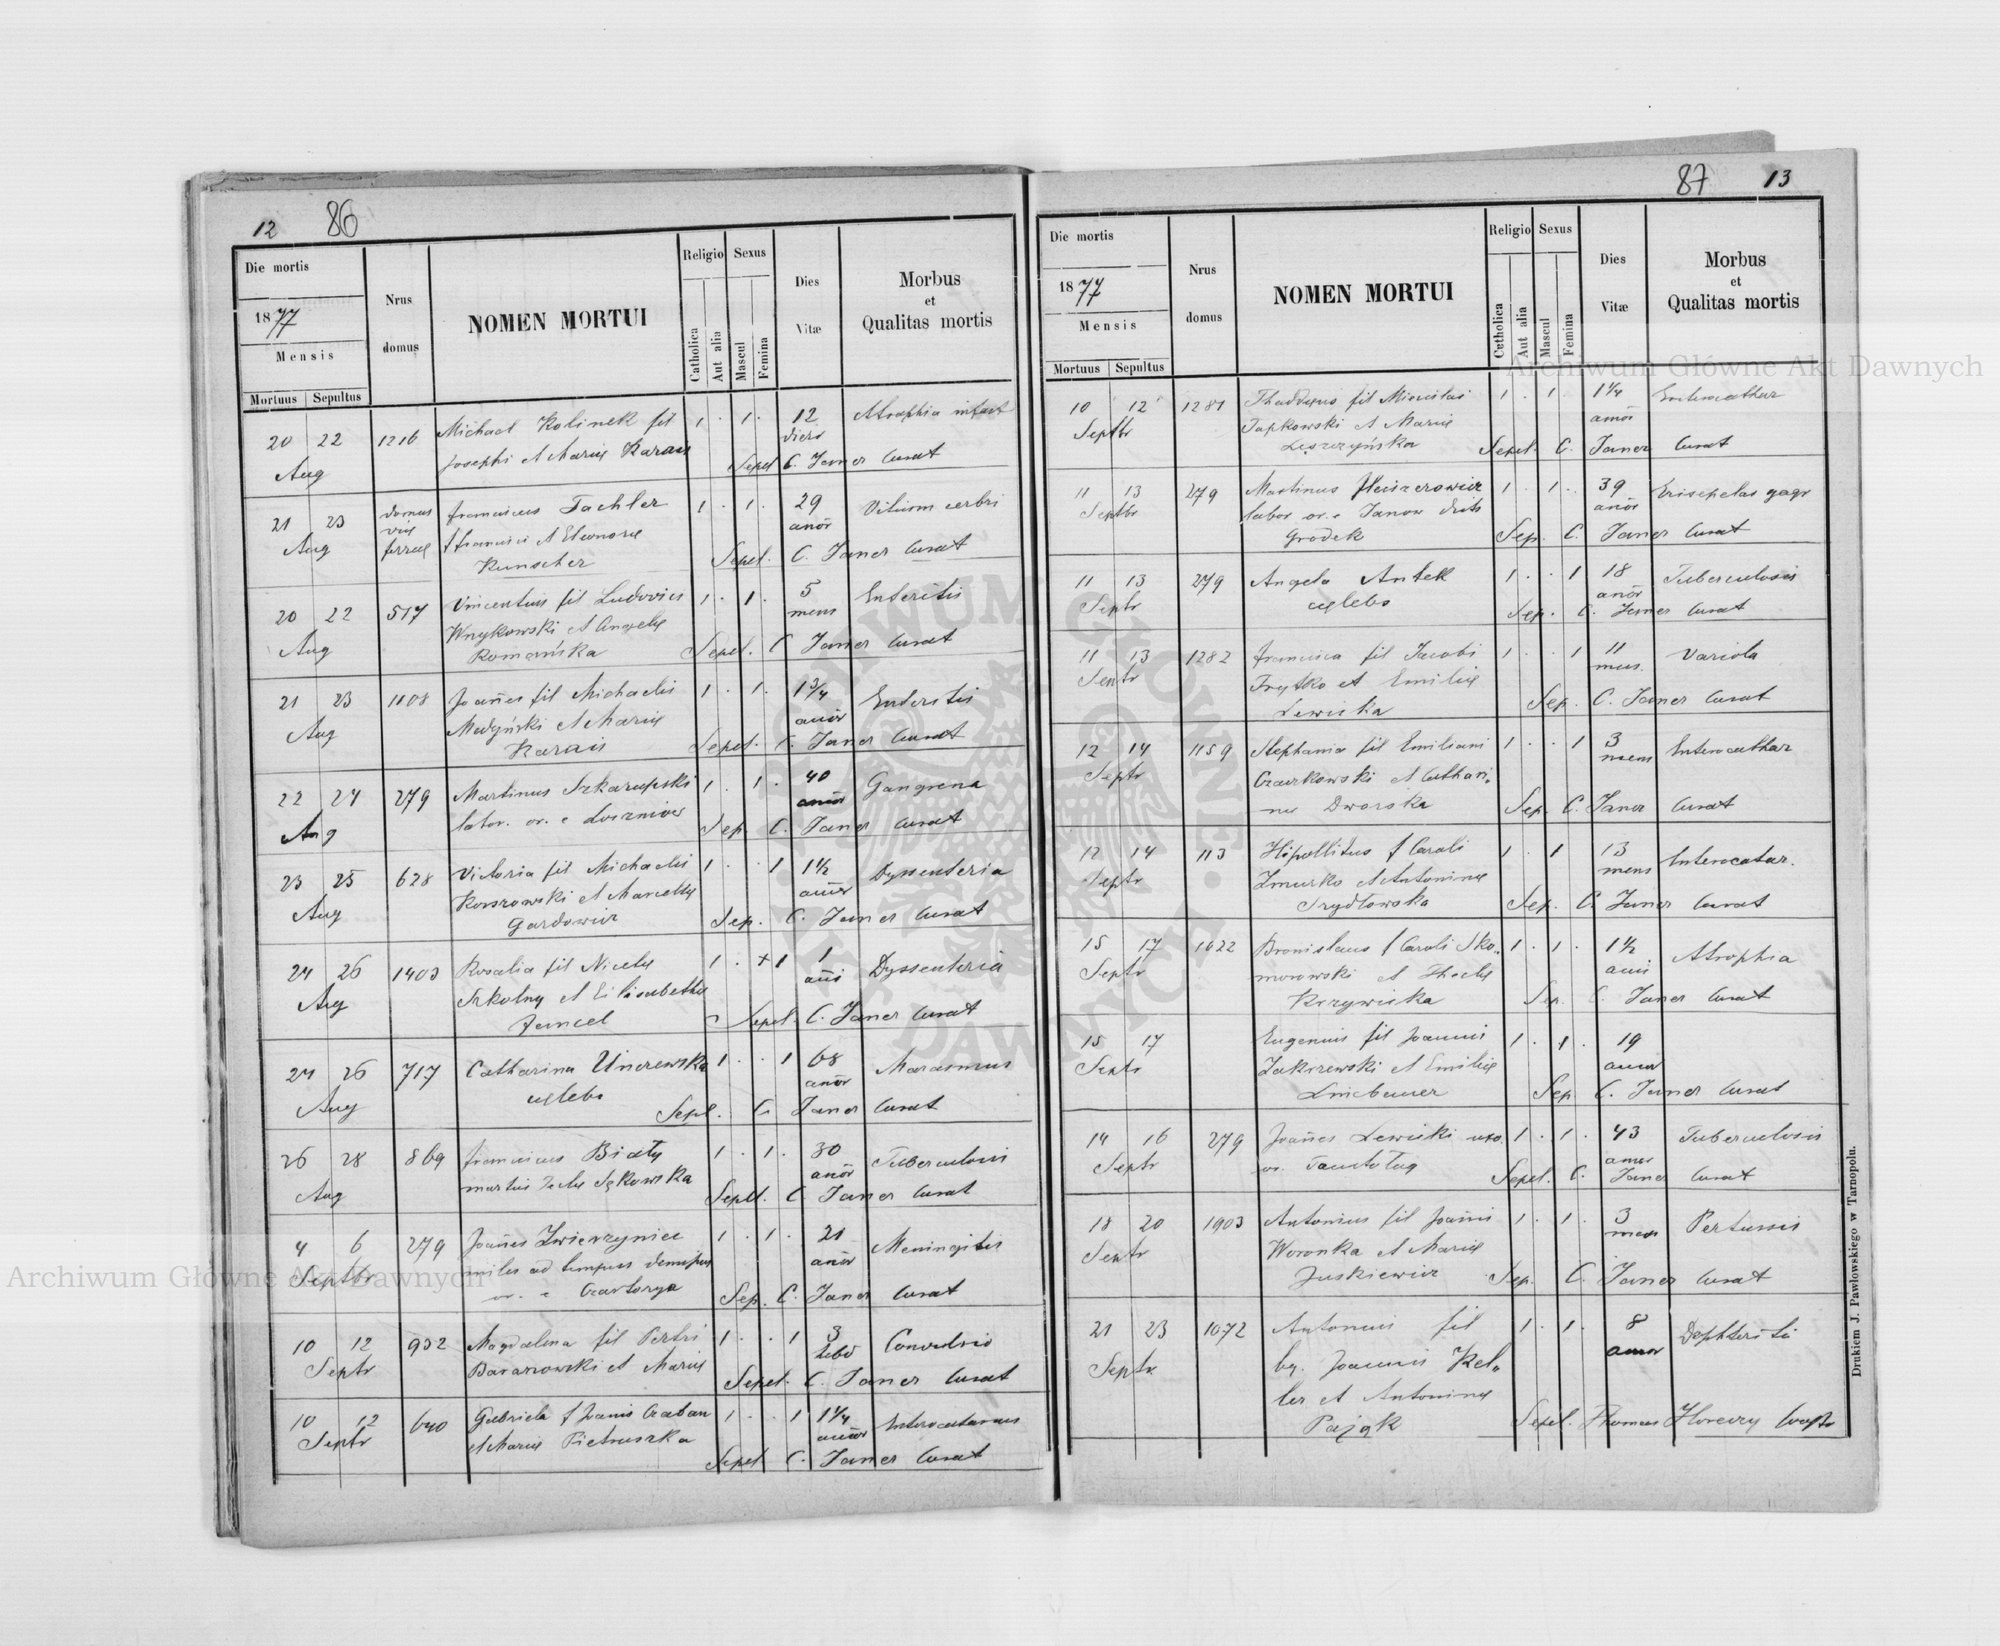 12 86
Die mortis
1877
Mensis
Mortuus Sepultus
Nrus domus
NOMEN MORTUI
Religio
Catholica
Aut alia
Sexus
Mascul
Femina
Dies Vitæ
Morbus
et
Qualitas mortis
20 22 1216 Michael Kolinek fil 1 . 1 . 12 Atrophia infant
Aug Josephi et Mariæ Karais dier
Sepel C. Janer Curat
21 23 domus Franciscus Tachler 1 . 1 . 29 Vitium cerbri
Aug viæ f Francisci et Eleonoræ anōr
ferreæ Kunscher Sepel. C. Janer Curat
20 22 517 Vincentius fil Ludovici 1 . 1 . 5 Enteritis
Aug Wnykowski et Angelæ mens
Romańska Sepel. C Janer Curat
21 23 1108 Joañes fil Michaelis 1 . 1 . 1 3/4 Enteritis
Aug Medyński et Mariæ anōr
Karais Sepel. C. Janer Curat
22 24 279 Martinus Szkarupski 1 . 1 . 40 Gangrena
Aug labor. or. e anōr
Sep. C. Janer Curat
23 25 628 Victoria fil Michaelis 1 . . 1 1 1/2 Dyssenteria
Aug Korszowski et Marcellæ
Gardowicz Sep. C. Janer Curat
24 26 1403 Rosalia fil Nicolæ 1 . 1 1 Dyssenteria
Aug Szkolny et Elisabethæ añi
Sepel. C. Janer Curat
24 26 717 Catharina 1 . . 1 68 Marasmus
Aug cælebs anōr
Sepel. C. Janer Curat
26 28 869 Franciscus Biały 1 . 1 . 30 Tuberculosis
Aug maritus Teclæ Sękowska anōr
Sepel. C Janer Curat
4 6 279 Joañes Zwierzyniec 1 . 1 . 21 Meningitis
Septbr miles ad tempus anōr
or. e Czartorya Sep. C. Janer Curat
10 12 932 Magdalena fil Petri 1 . . 1 3 Convulsio
Septr Baranowski et Mariæ hebd
Sepel. C. Janer Curat
10 12 640 Gabriela f Joanis Czaban 1 . . 1 1 1/4 Enterocatarrus
Septr et Mariæ Pietruszka
Sepel C. Janer Curat
87 13
Die mortis
1877
Mensis
Mortuus Sepultus
Nrus domus
NOMEN MORTUI
Religio
Catholica
Aut alia
Sexus
Mascul
Femina
Dies Vitæ
Morbus
et
Qualitas mortis
10 12 1281 Thaddæus fil 1 . 1 . 1 1/4 Enterocathar
Septbr Japkowski et Mariæ anōr
Leszczyńska Sepel. C. Janer Curat
11 13 279 Martinus 1 . 1 . 39 Erisipelas
Septbr labor or. e Janow anōr
Grodek Sep. C. Janer Curat
11 13 279 Angela Antek 1 . . 1 18 Tuberculosis
Septr cælebs anōr
Sep. C. Janer Curat
11 13 1282 Francisca fil Jacobi 1 . . 1 11 Variola
Septr Frytko et Emiliæ mens.
Lewicka Sep. C. Janer Curat
12 14 1159 Stephania fil Emiliani 1 . . 1 3 Enterocathar
Septr Czaczkowski et Cathari- mens
næ Dworska Sep. C. Janer Curat
12 14 113 Hipollitus f Caroli 1 . 1 13 Enterocatar.
Septr Zmurko et Antoninæ mens
Szydłowska Sep. C. Janer Curat
15 17 1622 Bronislaus f Caroli Sko- 1 . 1 . 1 1/2 Atrophia
Septr morowski et Theclæ
Krzywicka Sep. C. Janer Curat
15 17 Eugenius fil Joannis 1 . 1 . 19
Septr Zakrzewski et Emiliæ
Sep. C. Janer Curat
14 16 279 Joañes Lewicki 1 . 1 . 43 Tuberculosis
Septr
Sepel. C. Janer Curat
18 20 1903 Antonius fil Joañis 1 . 1 . 3 Pertussis
Septr Woronka et Mariæ mens
Juskiewicz Sep. C. Janer Curat
21 23 1072 Antonius fil 1 . 1 . 8 Dyphteritis
Septr. Joannis Kel-
ler et Antoninæ
Pająk Sepel. Thomas
Drukiem J. Pawłowskiego w Tarnopolu.
Archiwum Główne Akt Dawnych
Archiwum Główne Akt Dawnych
ARCHIWUM GŁÓWNE AKT DAWNYCH